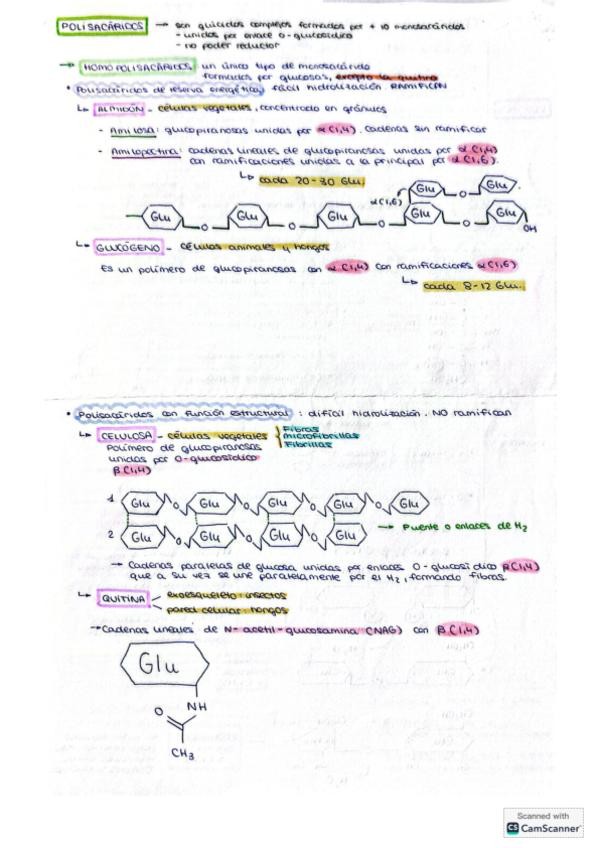 POLISACÁRIDOS → son glúcidos complejos formados por + 10 monosacáridos
- unidos por enlace O-glucosídico
- no poder reductor
→ HOMOPOLISACÁRIDOS: un único tipo de monosacárido
formados por glucosas, excepto la quitina
• Polisacáridos de reserva energética, fácil hidrolización. RAMIFICAN
↳ ALMIDÓN - células vegetales, concentrado en gránulos
- Amilosa: glucopiranosas unidas por α(1,4). cadenas sin ramificar
- Amilopectina: cadenas lineales de glucopiranosas unidas por α(1,4)
con ramificaciones unidas a la principal por α(1,6).
↳ cada 20-30 Glu.
α(1,6) Glu O Glu
Glu O Glu O Glu O Glu O Glu OH
↳ GLUCÓGENO - células animales y hongos
Es un polímero de glucopiranosas con α(1,4) con ramificaciones α(1,6)
↳ cada 8-12 Glu.
• Polisacáridos con función estructural: difícil hidrolización. NO ramifican
↳ CELULOSA - células vegetales
Fibras
microfibrillas
Fibrillas
Polímero de glucopiranosas
unidas por O-glucosídico
β(1,4)
1 Glu O Glu O Glu O Glu O Glu
2 Glu O Glu O Glu O Glu → Puente o enlaces de H2
→ Cadenas paralelas de glucosa unidas por enlaces O-glucosídico β(1,4)
que a su vez se une paralelamente por el H2, formando fibras.
↳ QUITINA
exoesqueleto: insectos
pared celular: hongos
→ Cadenas lineales de N-acetil-glucosamina (NAG) con β(1,4)
Glu
NH
O
CH3
Scanned with
CS CamScanner